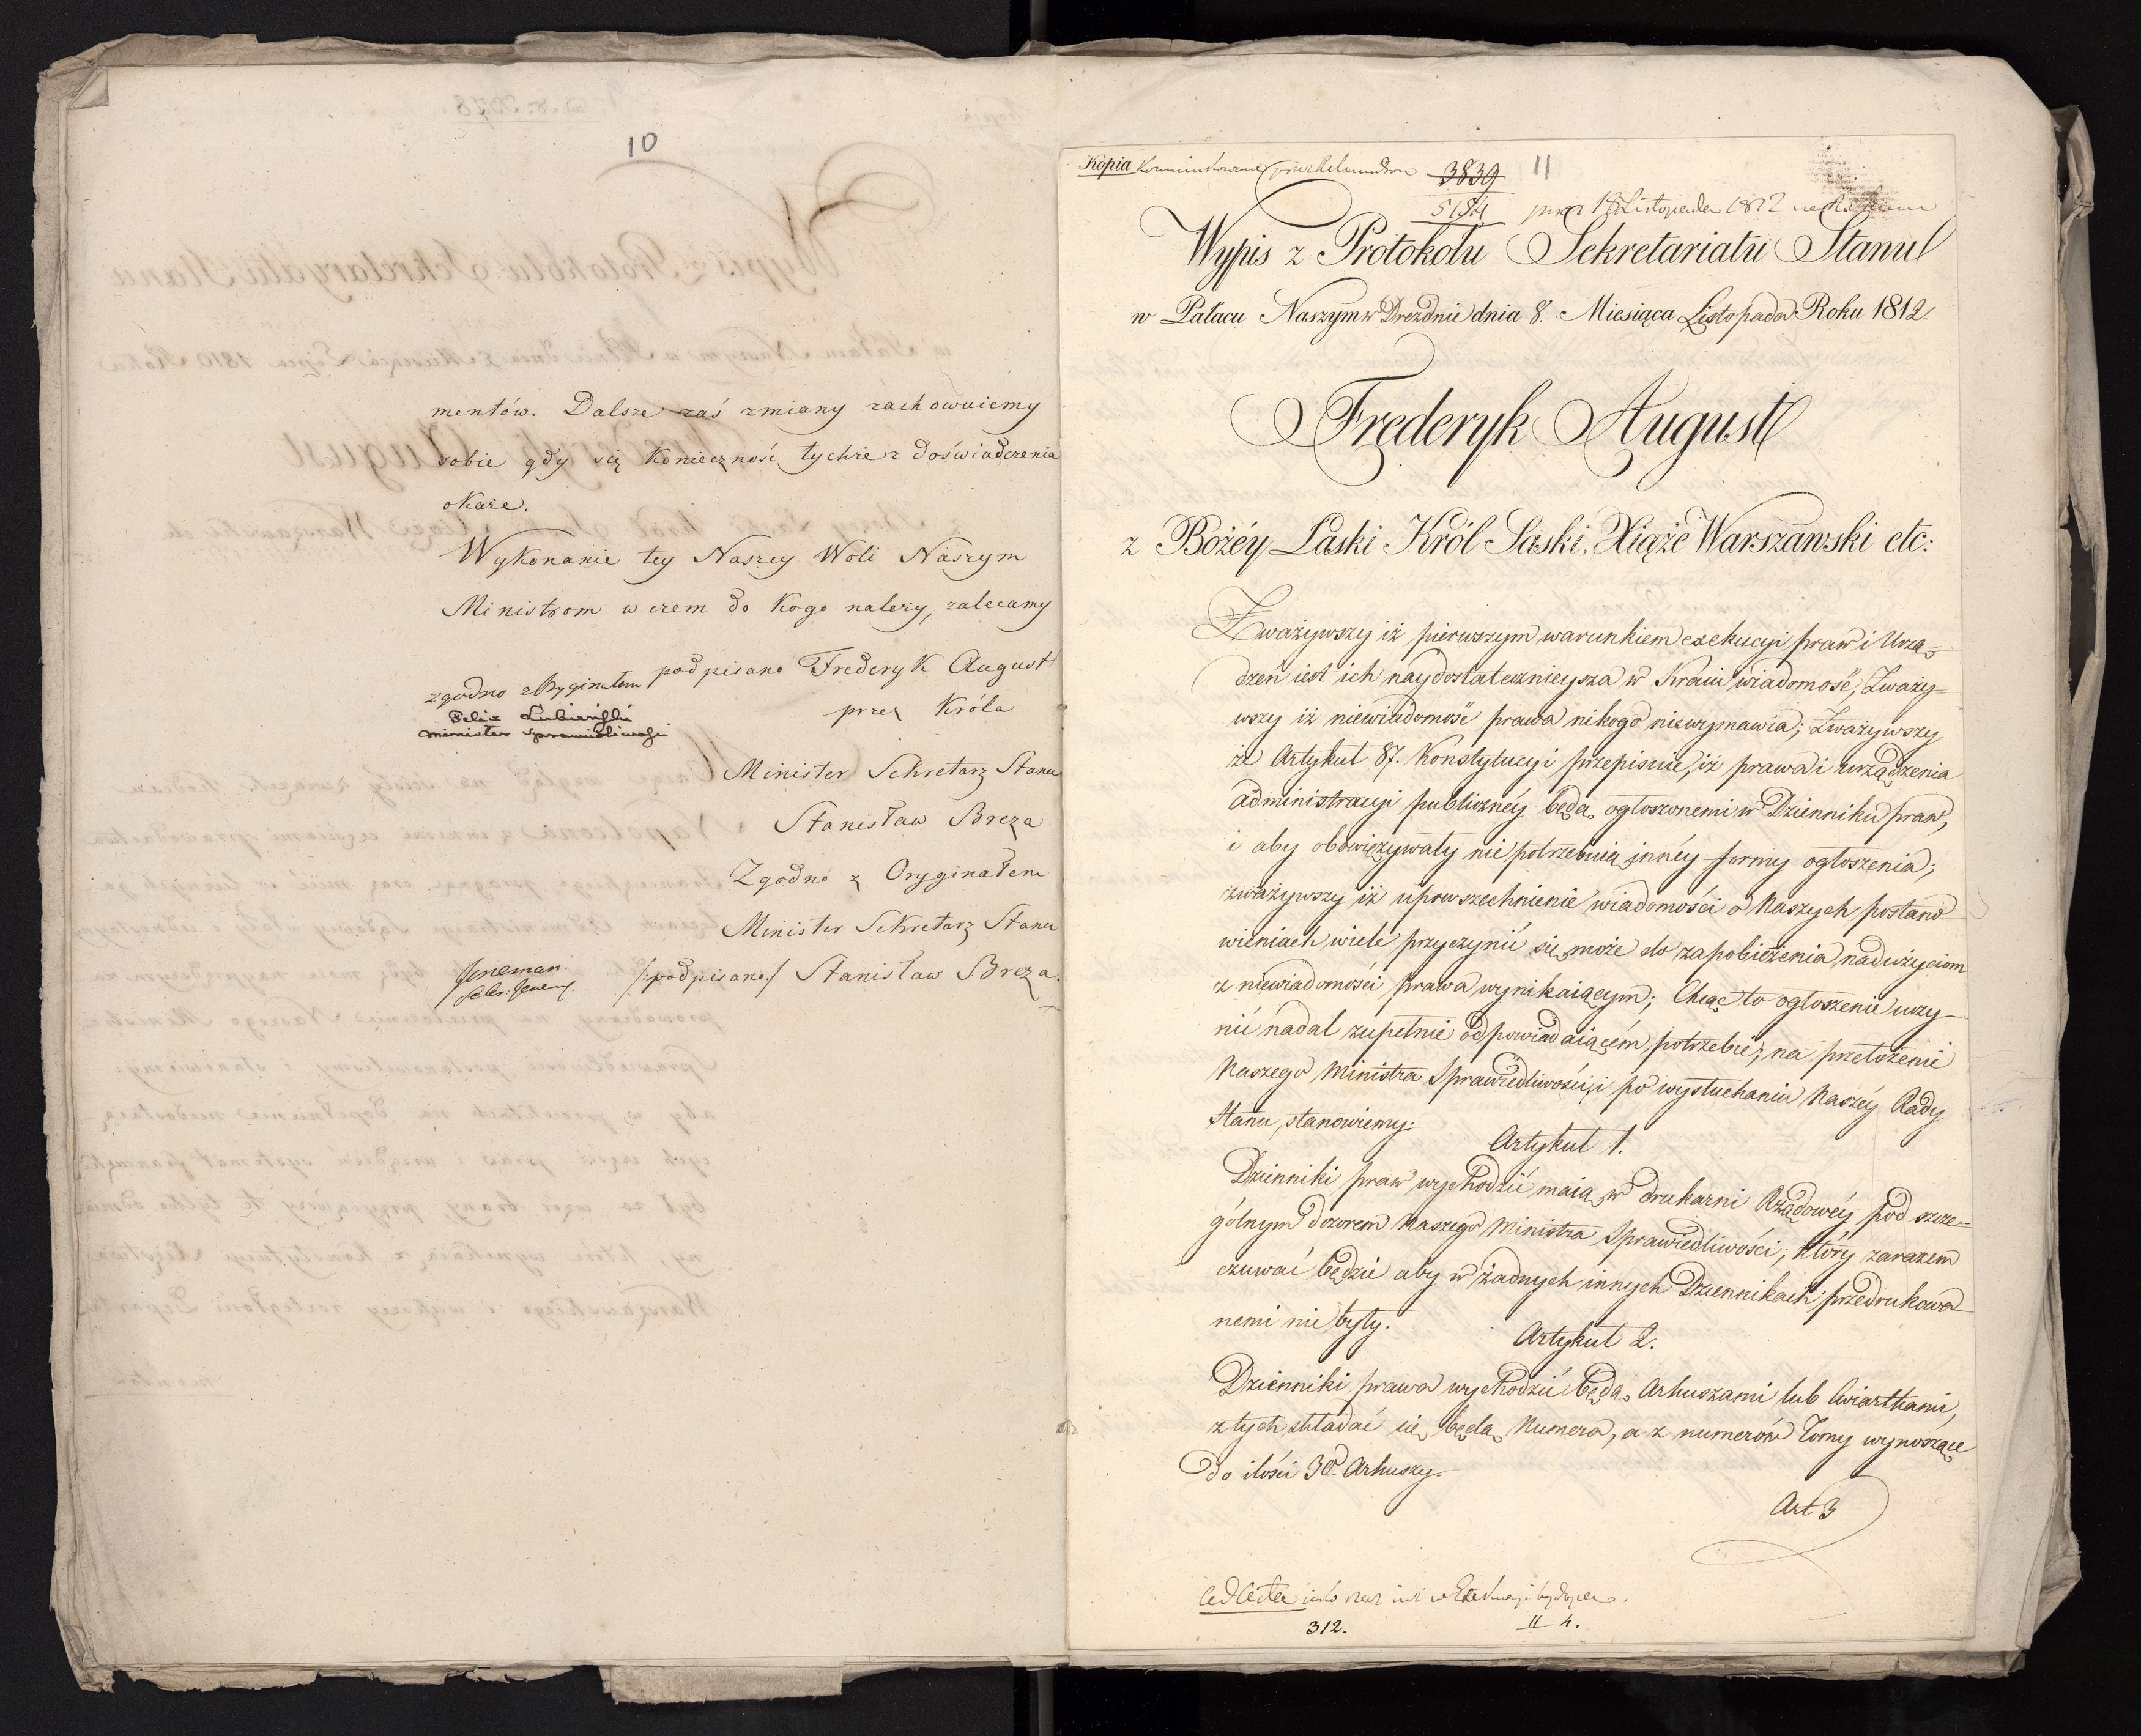 10
mentów. Dalsze zaś zmiany zachowuiemy
sobie gdy się Konieczność tychże z doświadczenia
okaże.
Wykonanie tey Naszey Woli Naszym
Ministrom w czem do Kogo należy, zalecamy
podpisano Frederyk August
zgodno z Oryginałem
Felix Łubieński
minister sprawiedliwości
przez Króla
Minister Sekretarz Stanu
Stanisław Breza
Zgodno z Oryginałem
Minister Sekretarz Stanu
/:podpisano:/ Stanisław Breza.
Kopia
3839
11
5184
18 Listopada 1812
Wypis z Protokołu Sekretariatu Stanu
w Pałacu Naszym w Dreźdnie dnia 8. Miesiąca Listopada Roku 1812.
Frederyk August
z Bożéy Łaski Król Saski, Xiąże Warszawski etc:
Zważywszy iż pierwszym warunkiem exekucyi praw i Urzą-
dzeń iest ich naydostatecznieysza w Kraiu wiadomość, Zważy-
wszy iż niewiadomość prawa nikogo niewymawia; Zważywszy
że Artykuł 87. Konstytucyi przepisuie, iż prawa i urządzenia
administracyi publicznéy będą ogłoszonemi w Dzienniku praw,
i aby obowięzywały nie potrzebuią innéy formy ogłoszenia;
zważywszy iż upowszechnienie wiadomości o Naszych postano-
wieniach wiele przyczynić się może do zapobieżenia nadużyciom
z niewiadomości prawa wynikaiącym; Chcąc to ogłoszenie uczy-
nić nadal zupełnie odpowiadaiącém potrzebie; na przełożenie
Naszego Ministra Sprawiedliwości, i po wysłuchaniu Naszéy Rady
Stanu, stanowiemy:
Artykuł 1.
Dzienniki praw wychodzić maią w drukarni Rządowéy pod szcze-
gólnym dozorem Naszego Ministra Sprawiedliwości; który zarazem
czuwać będzie aby w żadnych innych Dziennikach przedrukowa-
nemi nie były.
Artykuł 2.
Dzienniki prawa wychodzić będą Arkuszami lub ćwiartkami,
z tych składać się będą Numera, a z numerów Tomy wynoszące
do ilości 30. Arkuszy.
Art 3
ad acta
312.
II 4.